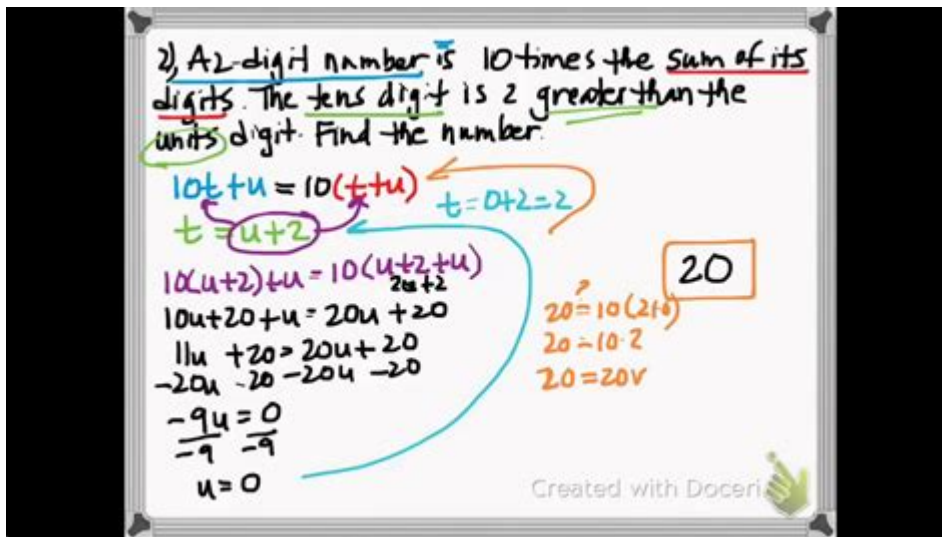 2), A 2-digit number is 10 times the sum of its
digits. The tens digit is 2 greater than the
units digit. Find the number.
10t+u = 10(t+u)
t = u+2
t = 0+2 = 2
10(u+2)+u = 10(u+2+u)
2u+2
10u+20+u = 20u+20
11u +20 = 20u+20
-20u -20 -20u -20
-9u = 0
-9 -9
u = 0
20
?
20 = 10(2+0)
20 = 10·2
20 = 20✓
Created with Doceri